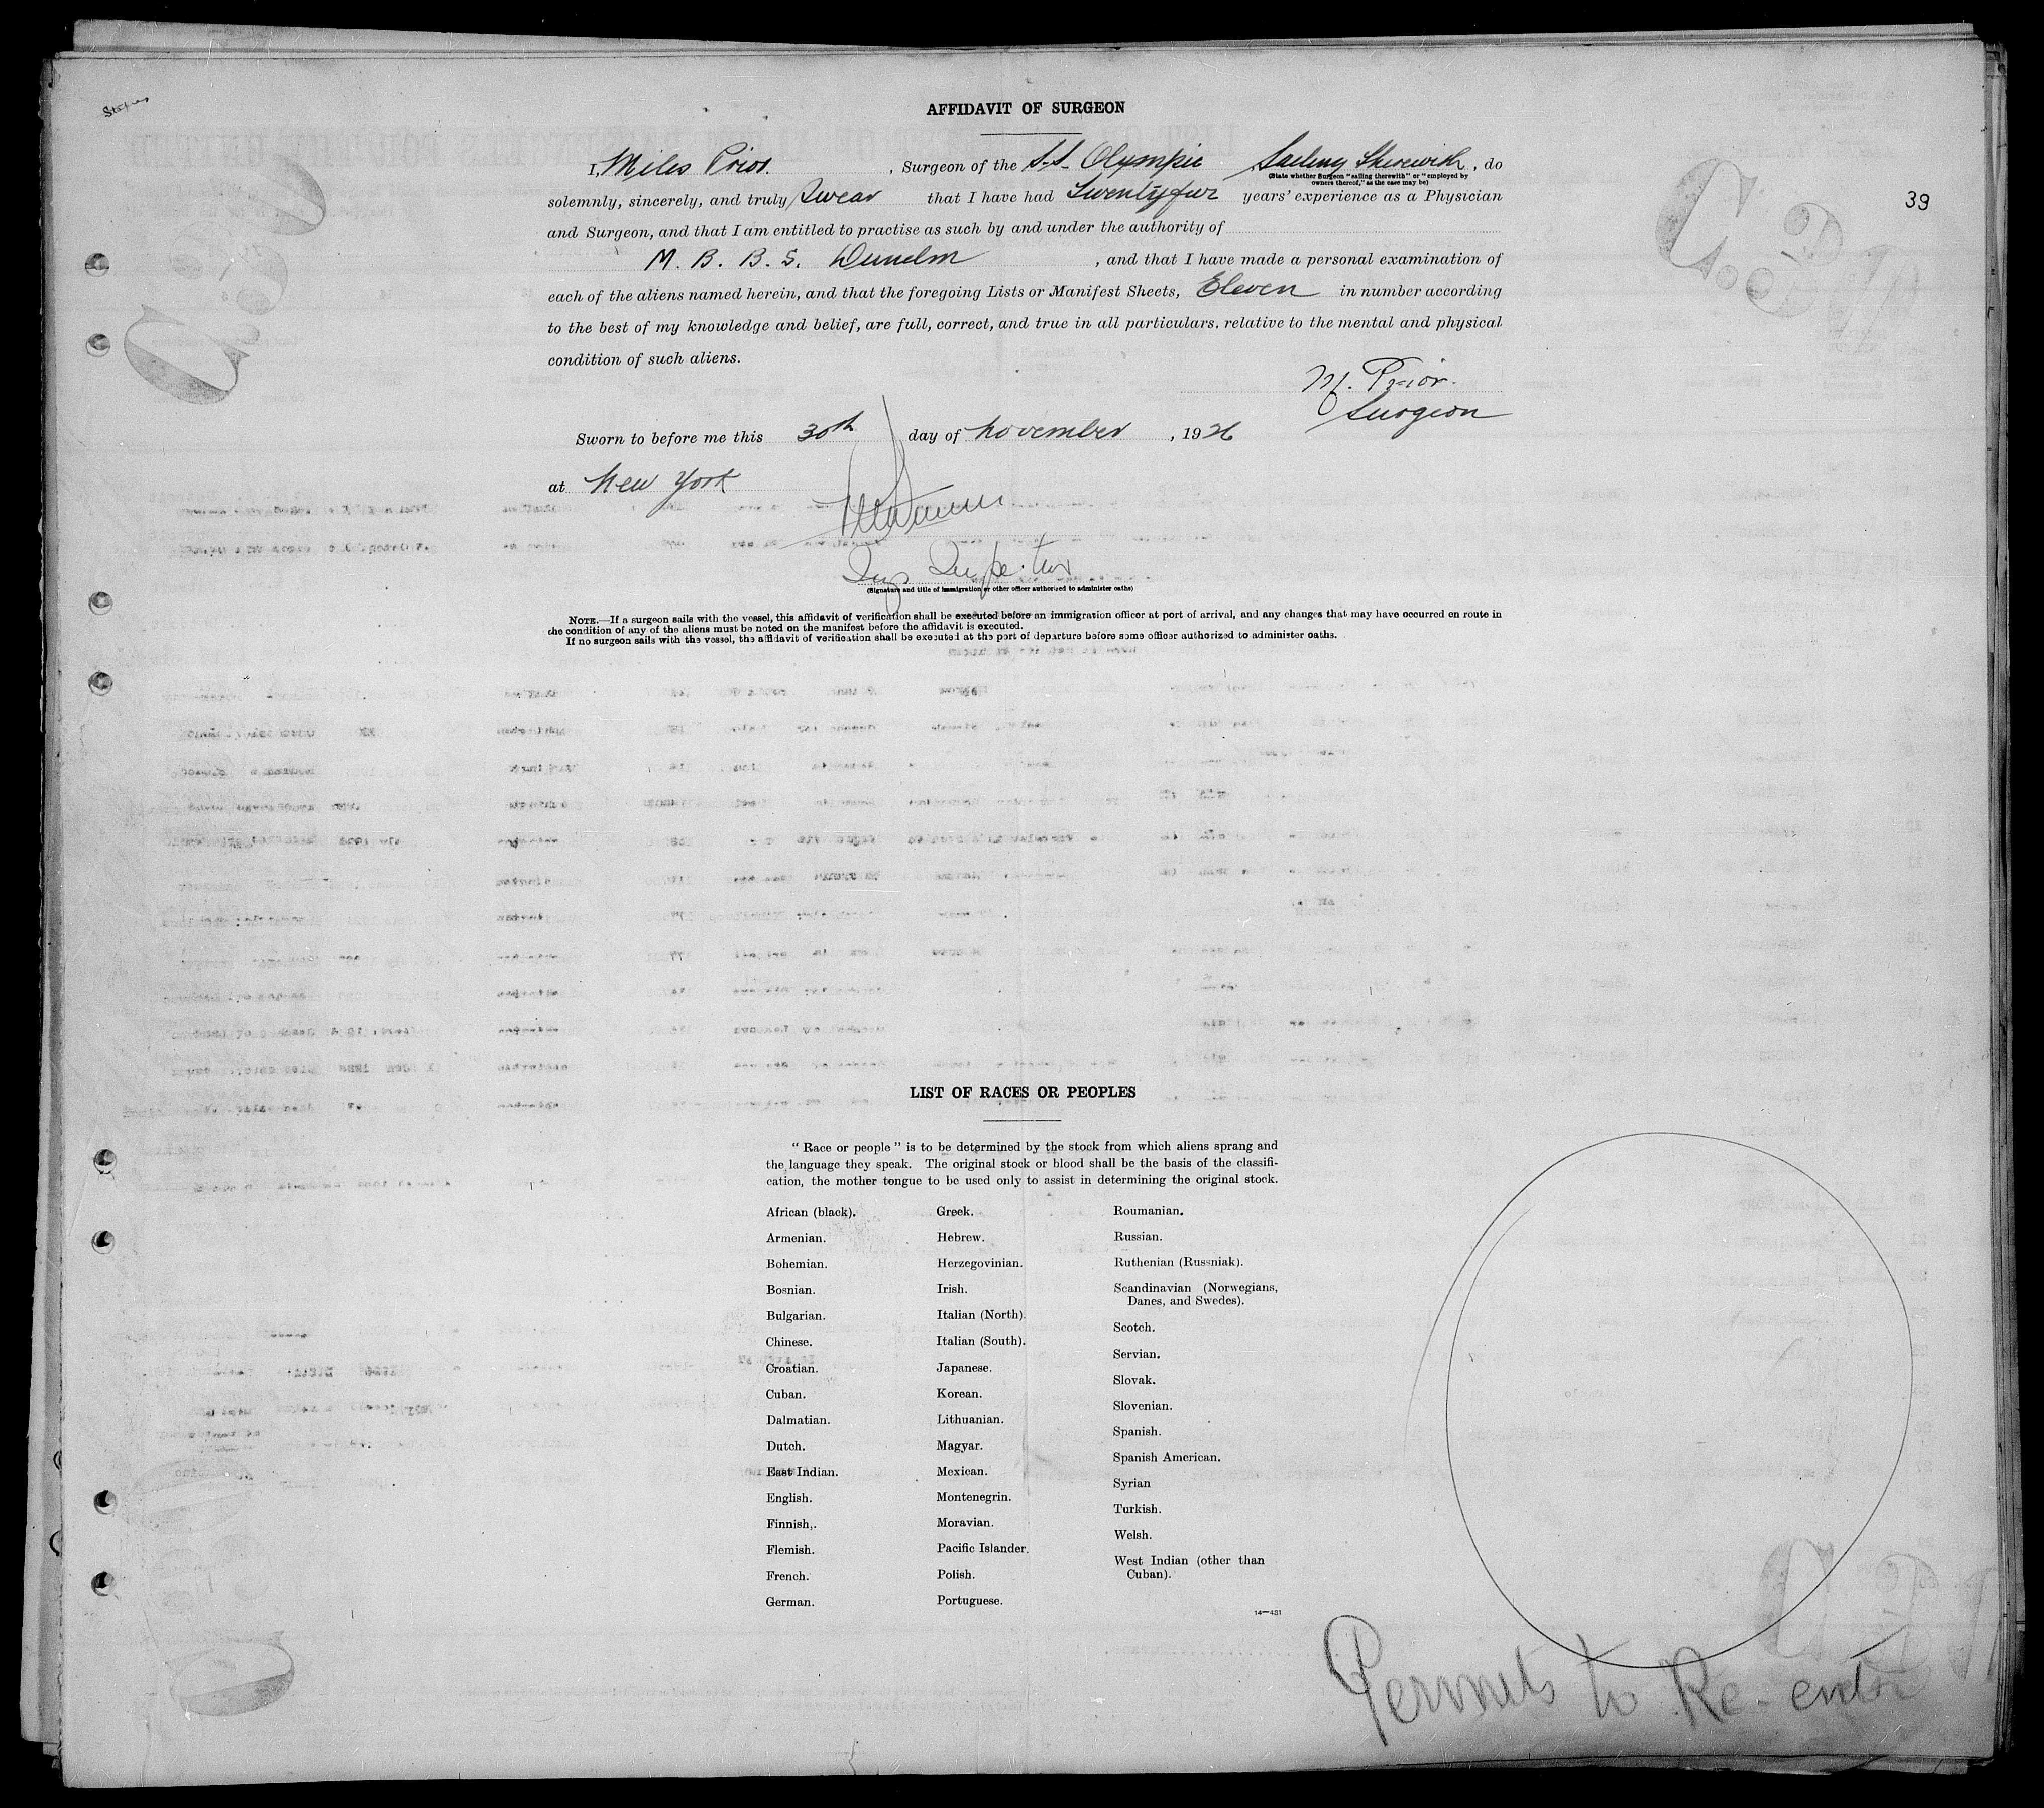 39
AFFIDAVIT OF SURGEON
I, Miles Prior. , Surgeon of the S.S. Olympic Sailing Therewith , do
(State whether Surgeon "sailing therewith" or "employed by
owners thereof," as the case may be)
solemnly, sincerely, and truly swear that I have had years' experience as a Physician
and Surgeon, and that I am entitled to practise as such by and under the authority of
M. B. B. S. Dunelm , and that I have made a personal examination of
each of the aliens named herein, and that the foregoing Lists or Manifest Sheets, Eleven in number according
to the best of my knowledge and belief, are full, correct, and true in all particulars, relative to the mental and physical
condition of such aliens.
M. Prior.
Surgeon
Sworn to before me this 30th day of November , 1926
at New York
(Signature and title of immigration or other officer authorized to administer oaths)
NOTE.—If a surgeon sails with the vessel, this affidavit of verification shall be executed before an immigration officer at port of arrival, and any changes that may have occurred en route in
the condition of any of the aliens must be noted on the manifest before the affidavit is executed.
If no surgeon sails with the vessel, the affidavit of verification shall be executed at the port of departure before some officer authorized to administer oaths.
LIST OF RACES OR PEOPLES
"Race or people" is to be determined by the stock from which aliens sprang and
the language they speak. The original stock or blood shall be the basis of the classifi-
cation, the mother tongue to be used only to assist in determining the original stock.
African (black).
Armenian.
Bohemian.
Bosnian.
Bulgarian.
Chinese.
Croatian.
Cuban.
Dalmatian.
Dutch.
East Indian.
English.
Finnish,.
Flemish.
French.
German.
Greek.
Hebrew.
Herzegovinian.
Irish.
Italian (North).
Italian (South).
Japanese.
Korean.
Lithuanian.
Magyar.
Mexican.
Montenegrin.
Moravian.
Pacific Islander.
Polish.
Portuguese.
Roumanian.
Russian.
Ruthenian (Russniak).
Scandinavian (Norwegians,
Danes, and Swedes).
Scotch.
Servian.
Slovak.
Slovenian.
Spanish.
Spanish American.
Syrian
Turkish.
Welsh.
West Indian (other than
Cuban).
14—431
Permits to Re-enter